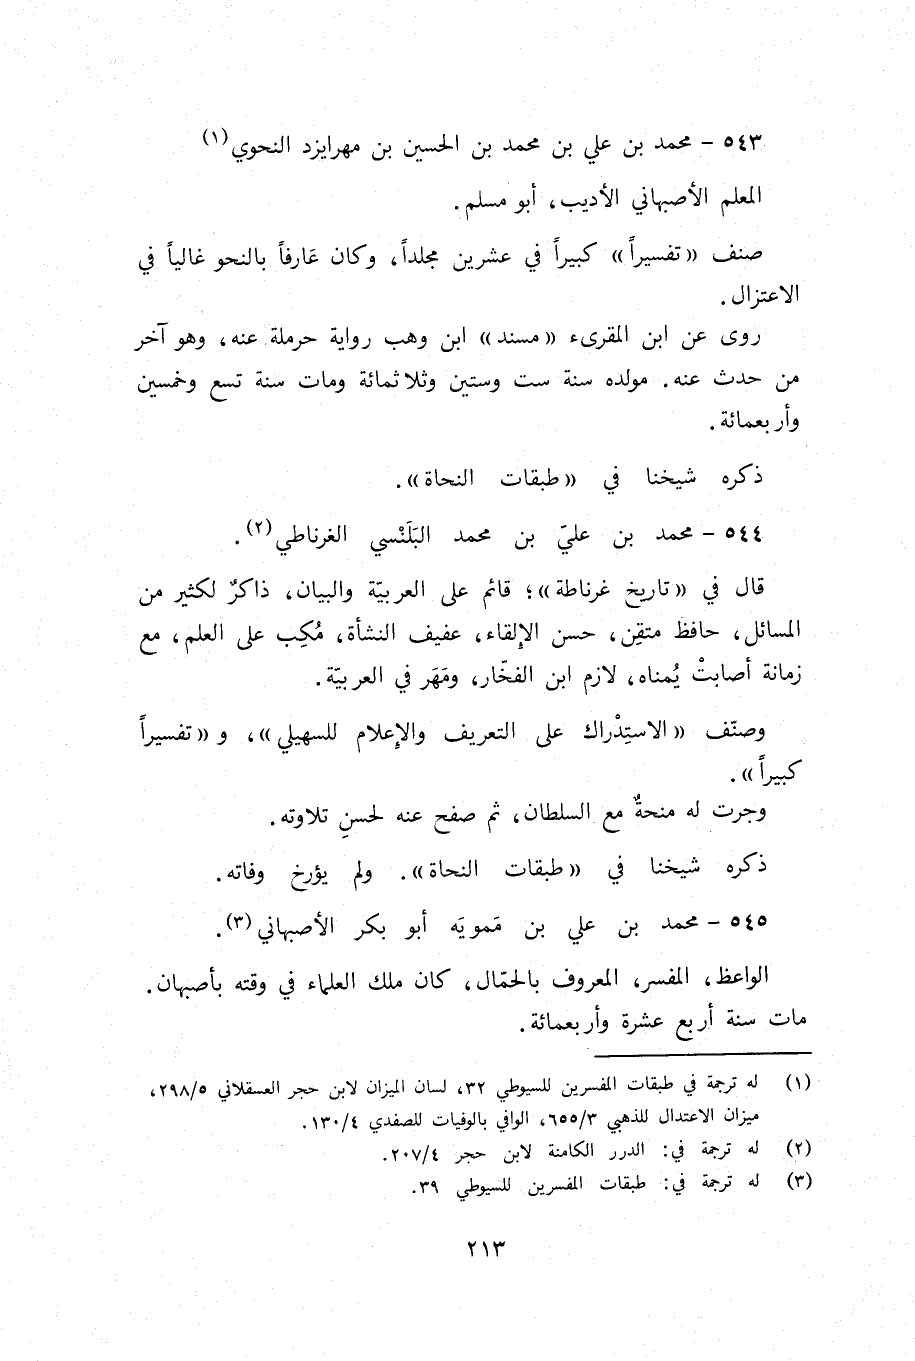 ٥٤٣ - محمد بن علي بن محمد بن الحسين بن مهرايزد النحوي(١)
المعلم الأصبهاني الأديب، أبو مسلم.
صنف «تفسيراً» كبيراً في عشرين مجلداً، وكان عَارفاً بالنحو غالياً في
الاعتزال.
روى عن ابن المقرىء «مسند» ابن وهب رواية حرملة عنه، وهو آخر
من حدث عنه. مولده سنة ست وستين وثلاثمائة ومات سنة تسع وخمسين
وأربعمائة.
ذكره شيخنا في «طبقات النحاة».
٥٤٤ - محمد بن عليّ بن محمد البَلَنْسي الغرناطي(٢).
قال في «تاريخ غرناطة»؛ قائم على العربيّة والبيان، ذاكرٌ لكثير من
المسائل، حافظ متقِن، حسن الإلقاء، عفيف النشأة، مُكِب على العلم، مع
زمانة أصابتْ يُمناه، لازم ابن الفخّار، ومَهَر في العربيّة.
وصنّف «الاستِدْراك على التعريف والإعلام للسهيلي»، و«تفسيراً
كبيراً».
وجرت له منحةٌ مع السلطان، ثم صفح عنه لحسنِ تلاوته.
ذكره شيخنا في «طبقات النحاة». ولم يؤرخ وفاته.
٥٤٥ - محمد بن علي بن مَمويَه أبو بكر الأصبهاني(٣).
الواعظ، المفسر، المعروف بالحمّال، كان ملك العلماء في وقته بأصبهان.
مات سنة أربع عشرة وأربعمائة.
(١) له ترجمة في طبقات المفسرين للسيوطي ٣٢، لسان الميزان لابن حجر العسقلاني ٢٩٨/٥،
ميزان الاعتدال للذهبي ٦٥٥/٣، الوافي بالوفيات للصفدي ١٣٠/٤.
(٢) له ترجمة في: الدرر الكامنة لابن حجر ٢٠٧/٤.
(٣) له ترجمة في: طبقات المفسرين للسيوطي ٣٩.
٢١٣